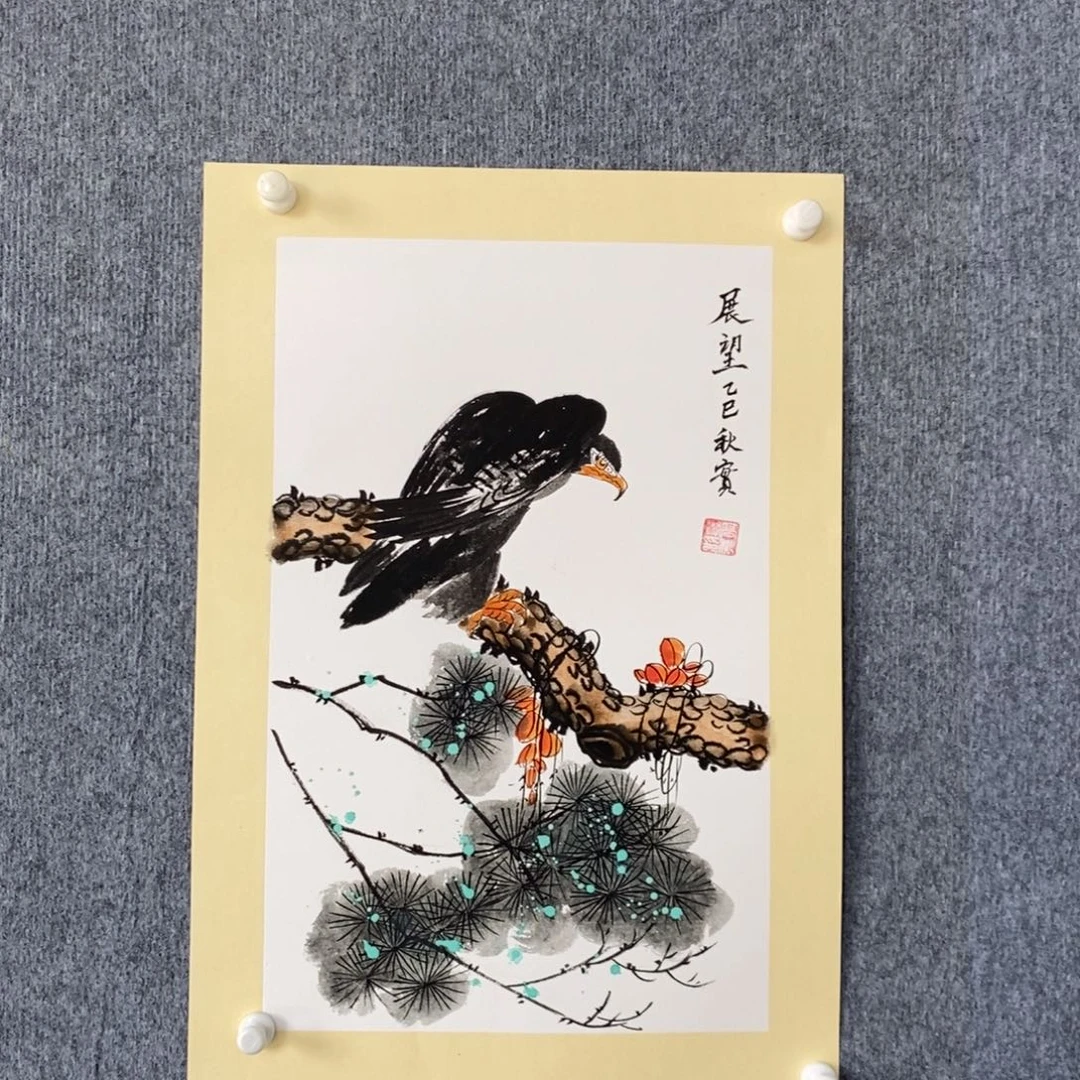 展望乙巳秋實